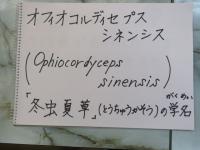 オフィオコルディセプス
シネンシス
(Ophiocordyceps
sinensis)
「冬虫夏草」(とうちゅうかそう)の学名
がくめい